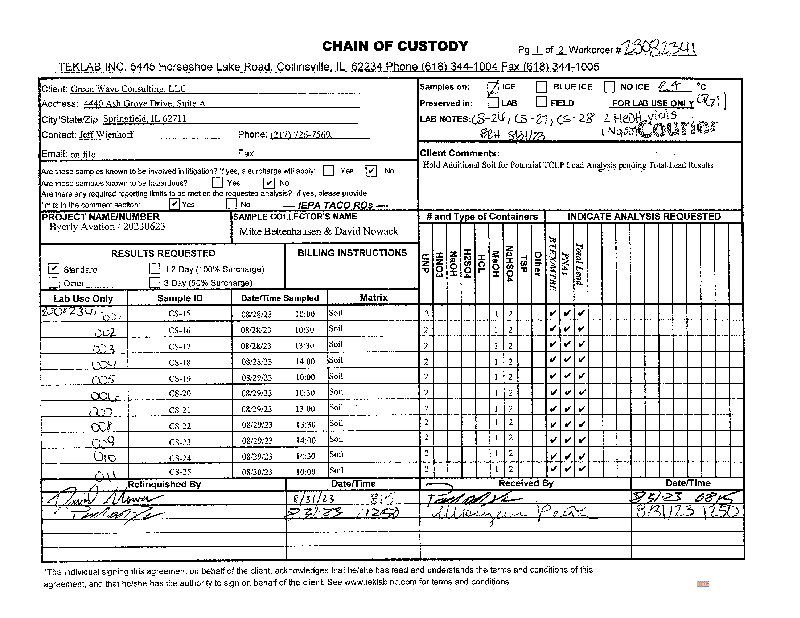 CHAIN OF CUSTODY
Pg 1 of 2 Workorder # 23082341
TEKLAB INC. 5445 Horseshoe Lake Road, Collinsville, IL 62234 Phone (618) 344-1004 Fax (618) 344-1005
Client: Green Wave Consulting, LLC
Address: 4440 Ash Grove Drive, Suite A
City/State/Zip Springfield, IL 62711
Contact: Jeff Wienhoff Phone: (217) 726-7569
Email: on file Fax
Samples on: ICE BLUE ICE NO ICE °C
Preserved in: LAB FIELD FOR LAB USE ONLY
LAB NOTES: CS-26, CS-27, CS-28 2 MeOH vials
Courier
Client Comments:
Hold Additional Soil for Potential TCLP Lead Analysis pending Total Lead Results
Are these samples known to be involved in litigation? If yes, a surcharge will apply Yes ✔ No
Are these samples known to be hazardous? Yes ✔ No
Are there any required reporting limits to be met on the requested analysis? If yes, please provide
limits in the comment section: ✔ Yes No IEPA TACO ROs
PROJECT NAME/NUMBER
Byerly Avation / 20230623
SAMPLE COLLECTOR'S NAME
Mike Bettenhausen & David Nowack
# and Type of Containers
INDICATE ANALYSIS REQUESTED
RESULTS REQUESTED
✔ Standard 1 2 Day (100% Surcharge)
Other 3 Day (50% Surcharge)
BILLING INSTRUCTIONS
UNP HNO3 NaOH H2SO4 HCL MeOH NaHSO4 TSP Other
PNAs Total Lead
Lab Use Only Sample ID Date/Time Sampled Matrix
001 CS-15 08/28/23 10:00 Soil 2 1 2 ✔ ✔ ✔
002 CS-16 08/28/23 10:30 Soil 2 1 2 ✔ ✔ ✔
003 CS-17 08/28/23 13:30 Soil 2 1 2 ✔ ✔ ✔
004 CS-18 08/28/23 14:00 Soil 2 1 2 ✔ ✔ ✔
005 CS-19 08/29/23 10:00 Soil 2 1 2 ✔ ✔ ✔
006 CS-20 08/29/23 10:30 Soil 2 1 2 ✔ ✔ ✔
007 CS-21 08/29/23 13:00 Soil 2 1 2 ✔ ✔ ✔
008 CS-22 08/29/23 13:30 Soil 2 1 2 ✔ ✔ ✔
009 CS-23 08/29/23 14:00 Soil 2 1 2 ✔ ✔ ✔
010 CS-24 08/29/23 14:30 Soil 2 1 2 ✔ ✔ ✔
011 CS-25 08/30/23 10:00 Soil 2 1 2 ✔ ✔ ✔
Relinquished By Date/Time Received By Date/Time
8/31/23 8/31/23 0815
8/31/23 1250 8/31/23 1250
*The individual signing this agreement on behalf of the client, acknowledges that he/she has read and understands the terms and conditions of this
agreement, and that he/she has the authority to sign on behalf of the client. See www.teklabinc.com for terms and conditions